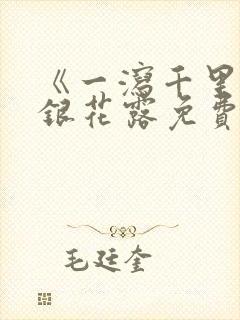 《一瀉千里
銀花露免費
毛廷奎